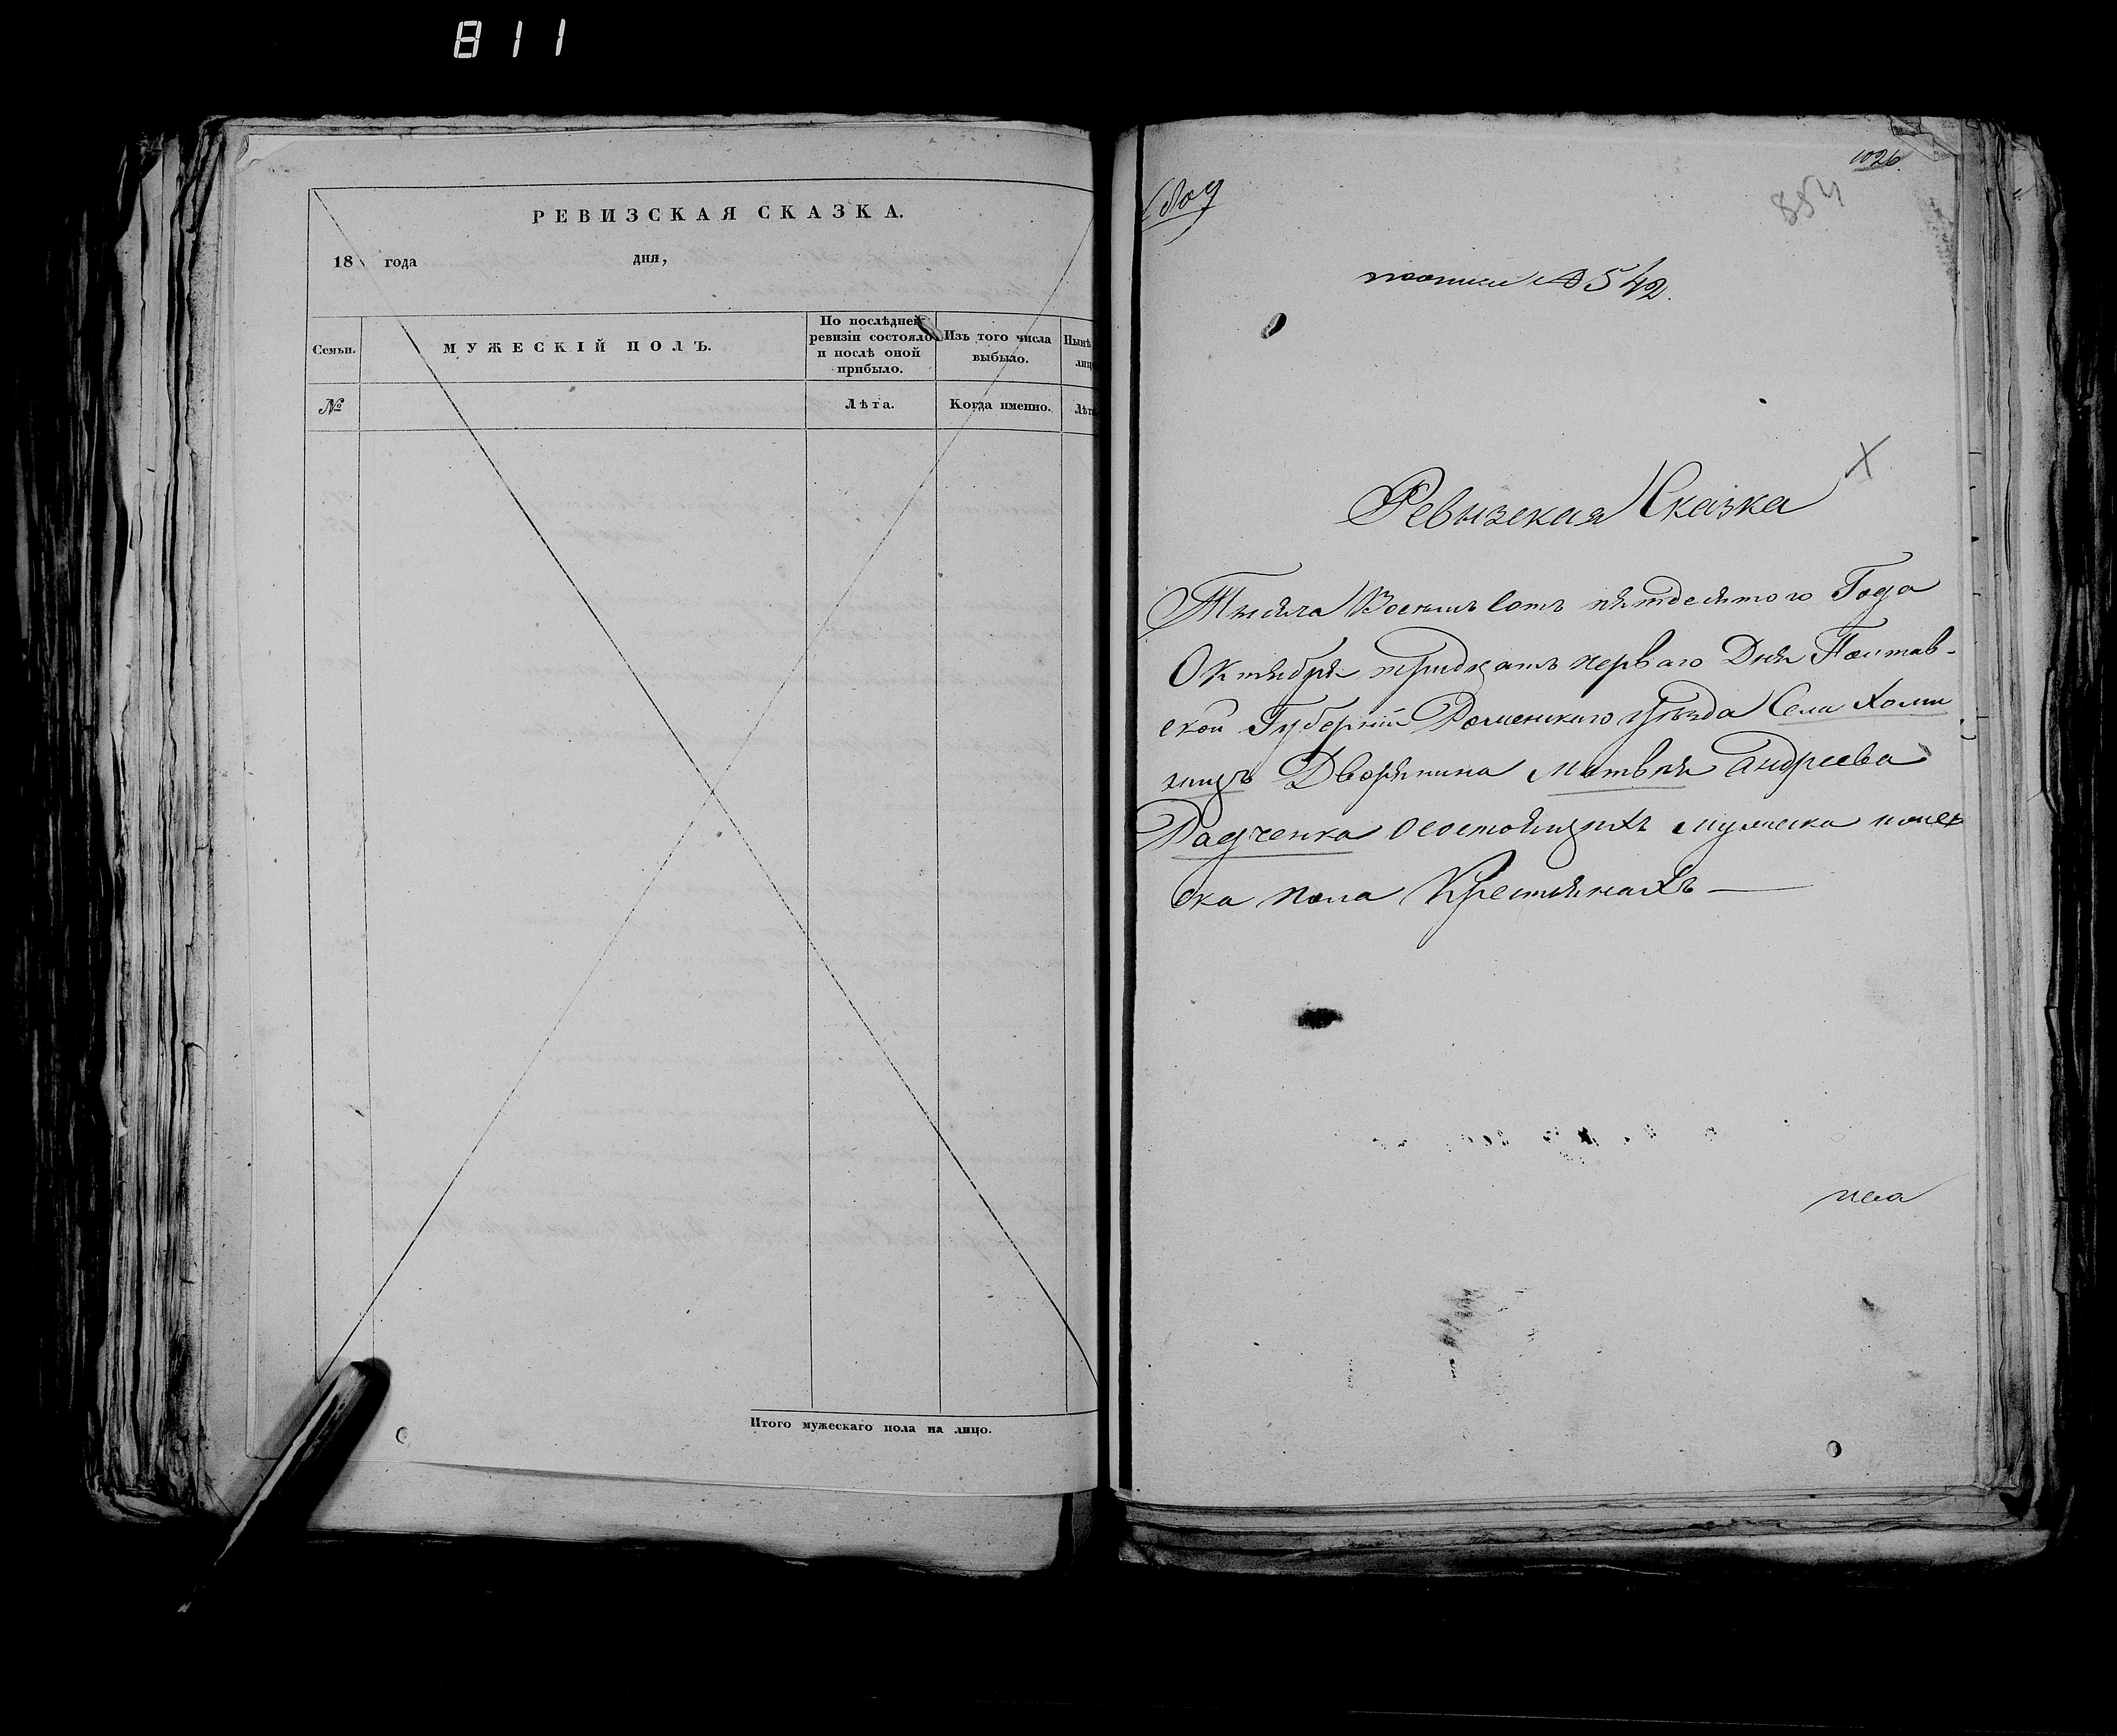 811
РЕВИЗСКАЯ СКАЗКА.
18 года дня,
Семьи.
МУЖЕСКІЙ ПОЛЪ.
По послѣдней
ревизіи состояло
и послѣ оной
прибыло.
Изъ того числа
выбыло.
Нынѣ
лиц
№
Лѣта.
Когда именно.
Лѣта
Итого мужескаго пола на лицо.
1026
854
1809
№ 542.
Ревызская Сказка
Тысяча Восемъ Сотъ пятдесятого Года
Октября тридцать перваго Дня Полтав-
ской Губерніи Роменского уѣзда Села
Дворянина Матвѣя Андреева
Радченка осостоящихъ мужеска
ска пола Крестянахъ